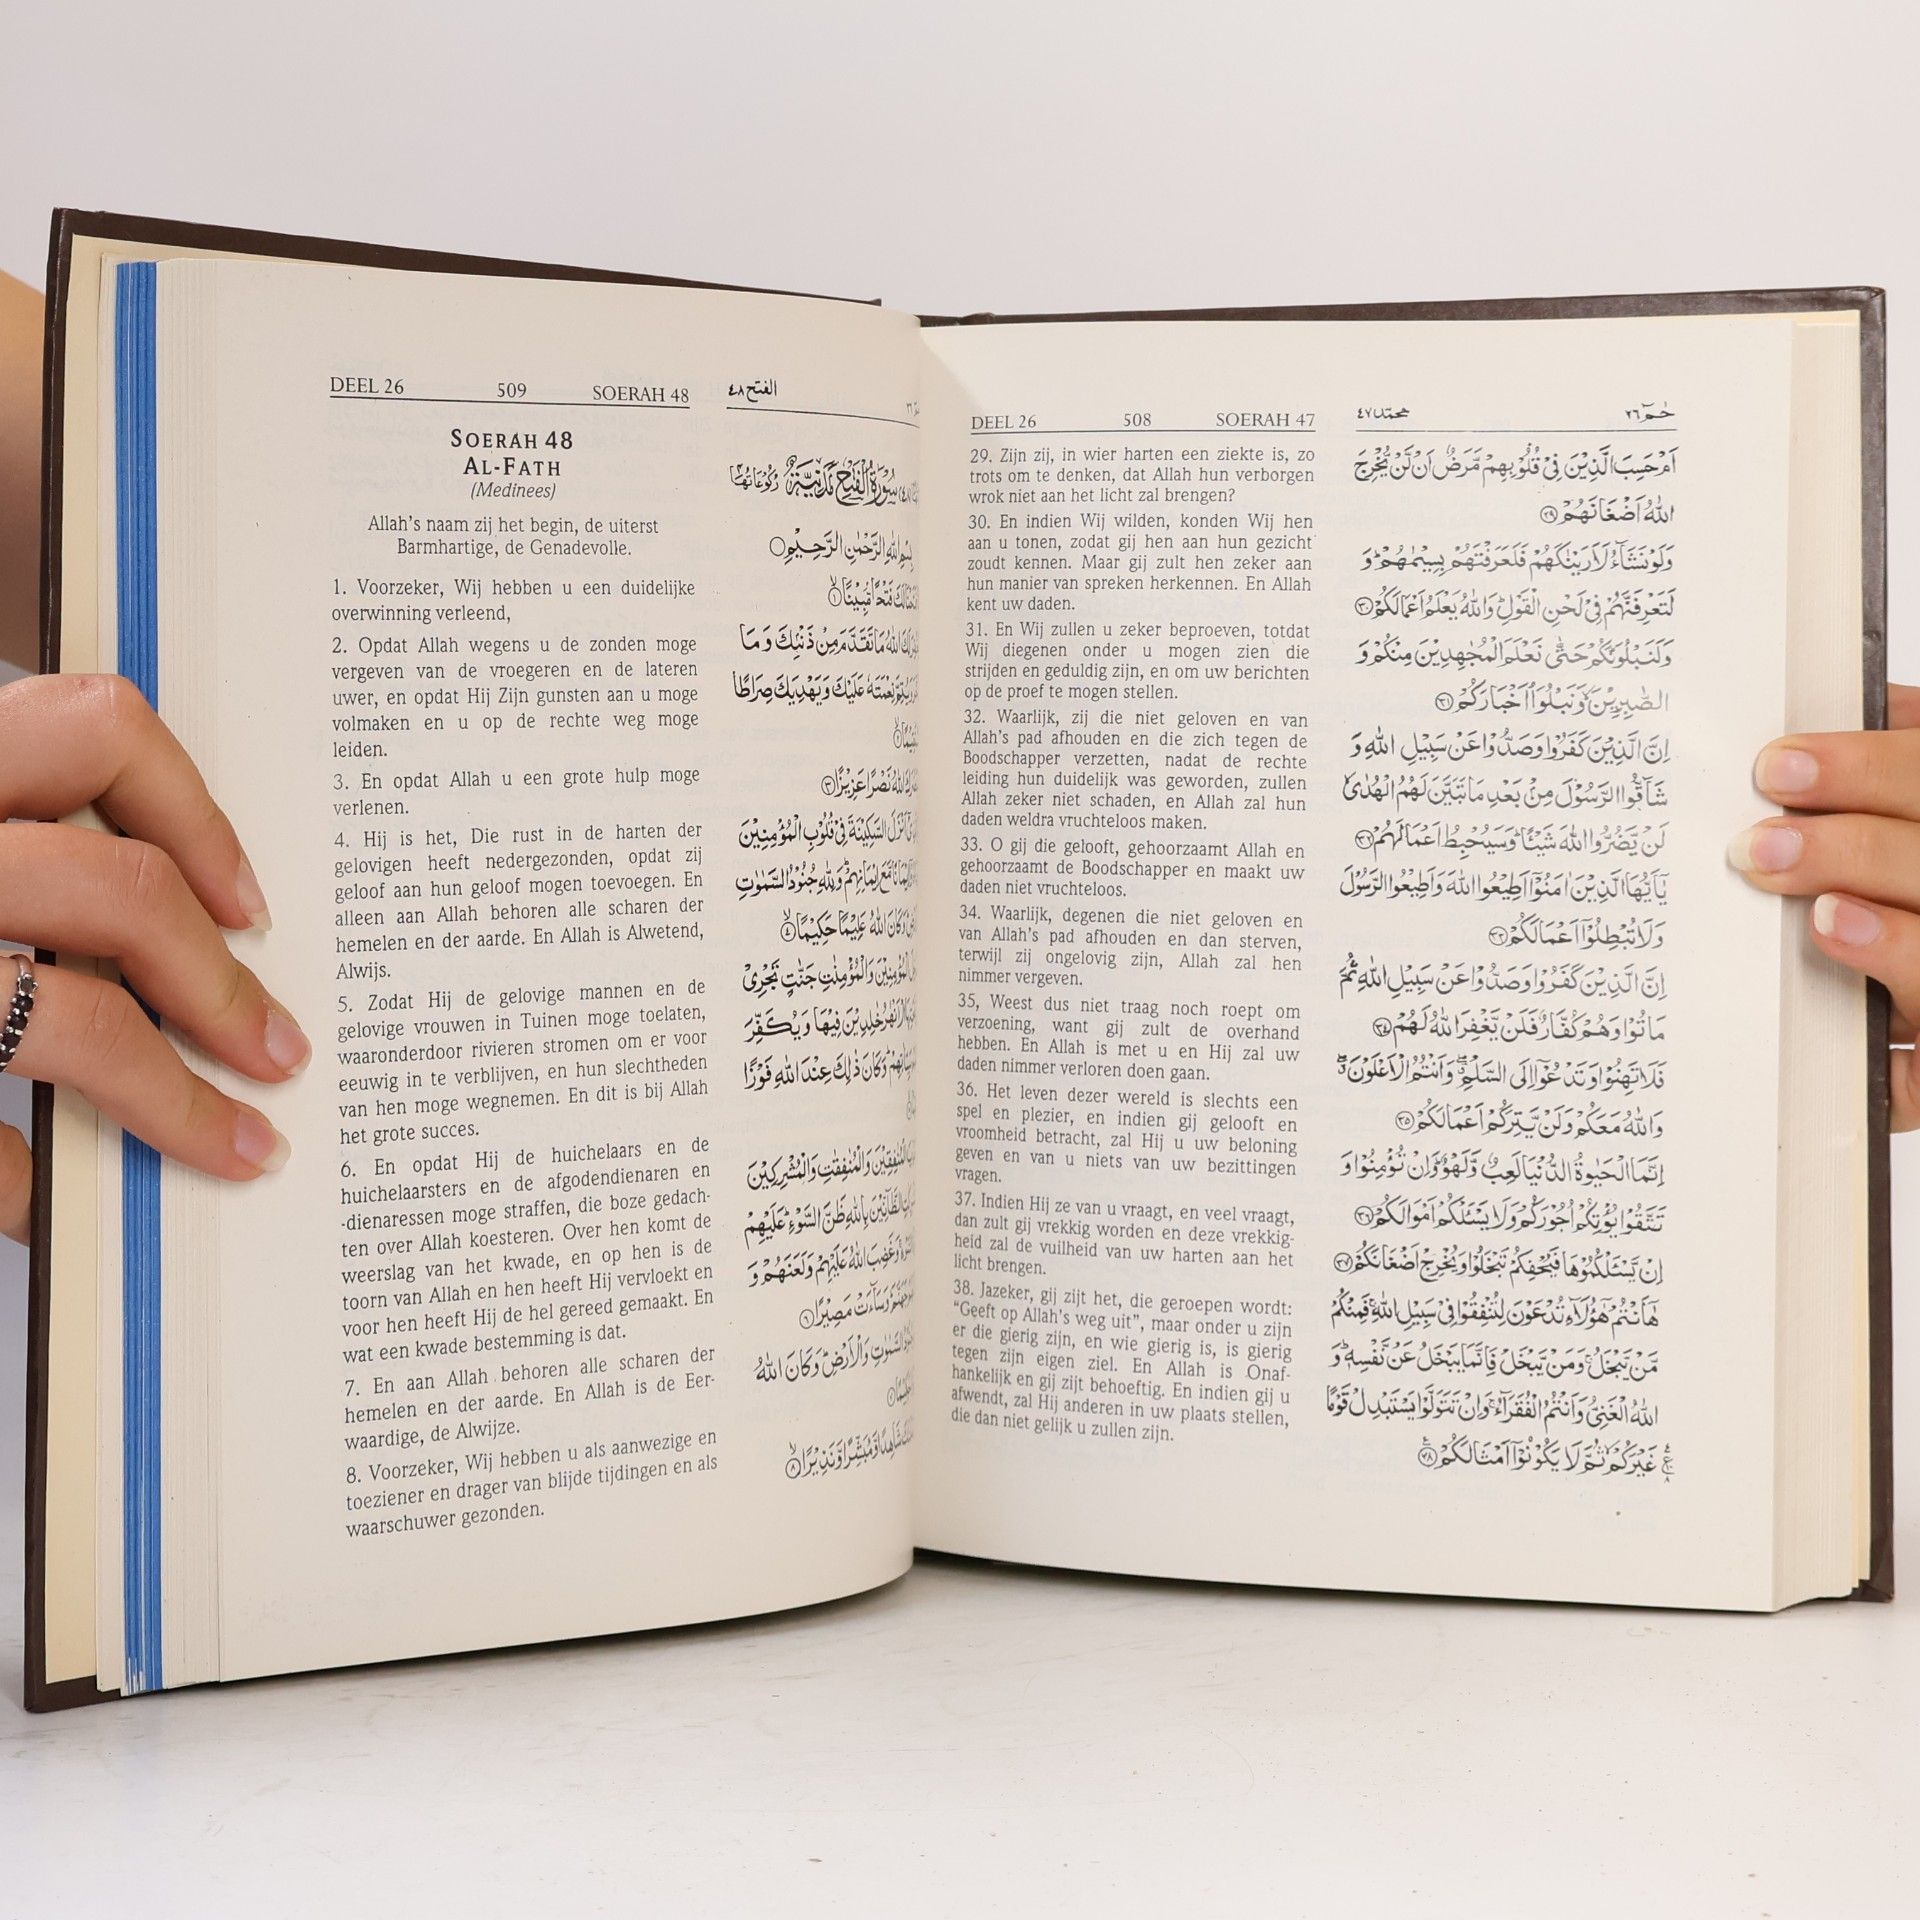 DEEL 26 508 SOERAH 47
29. Zijn zij, in wier harten een ziekte is, zo
trots om te denken, dat Allah hun verborgen
wrok niet aan het licht zal brengen?
30. En indien Wij wilden, konden Wij hen
aan u tonen, zodat gij hen aan hun gezicht
zoudt kennen. Maar gij zult hen zeker aan
hun manier van spreken herkennen. En Allah
kent uw daden.
31. En Wij zullen u zeker beproeven, totdat
Wij diegenen onder u mogen zien die
strijden en geduldig zijn, en om uw berichten
op de proef te mogen stellen.
32. Waarlijk, zij die niet geloven en van
Allah's pad afhouden en die zich tegen de
Boodschapper verzetten, nadat de rechte
leiding hun duidelijk was geworden, zullen
Allah zeker niet schaden, en Allah zal hun
daden weldra vruchteloos maken.
33. O gij die gelooft, gehoorzaamt Allah en
gehoorzaamt de Boodschapper en maakt uw
daden niet vruchteloos.
34. Waarlijk, degenen die niet geloven en
van Allah's pad afhouden en dan sterven,
terwijl zij ongelovig zijn, Allah zal hen
nimmer vergeven.
35, Weest dus niet traag noch roept om
verzoening, want gij zult de overhand
hebben. En Allah is met u en Hij zal uw
daden nimmer verloren doen gaan.
36. Het leven dezer wereld is slechts een
spel en plezier, en indien gij gelooft en
vroomheid betracht, zal Hij u uw beloning
geven en van u niets van uw bezittingen
vragen.
37. Indien Hij ze van u vraagt, en veel vraagt,
dan zult gij vrekkig worden en deze vrekkig-
heid zal de vuilheid van uw harten aan het
licht brengen.
38. Jazeker, gij zijt het, die geroepen wordt:
“Geeft op Allah's weg uit”, maar onder u zijn
er die gierig zijn, en wie gierig is, is gierig
tegen zijn eigen ziel. En Allah is Onaf-
hankelijk en gij zijt behoeftig. En indien gij u
afwendt, zal Hij anderen in uw plaats stellen,
die dan niet gelijk u zullen zijn.
حٰمٓ ٢٦ محمّد ٤٧
اَمْ حَسِبَ الَّذِيْنَ فِيْ قُلُوْبِهِمْ مَّرَضٌ اَنْ لَّنْ يُّخْرِجَ
اللّٰهُ اَضْغَانَهُمْ ۝٢٩
وَلَوْ نَشَآءُ لَاَرَيْنٰكَهُمْ فَلَعَرَفْتَهُمْ بِسِيْمٰهُمْ ؕ وَ
لَتَعْرِفَنَّهُمْ فِيْ لَحْنِ الْقَوْلِ ؕ وَاللّٰهُ يَعْلَمُ اَعْمَالَكُمْ ۝٣٠
وَلَنَبْلُوَنَّكُمْ حَتّٰى نَعْلَمَ الْمُجٰهِدِيْنَ مِنْكُمْ وَ
الصّٰبِرِيْنَ ۙ وَنَبْلُوَا۟ اَخْبَارَكُمْ ۝٣١
اِنَّ الَّذِيْنَ كَفَرُوْا وَصَدُّوْا عَنْ سَبِيْلِ اللّٰهِ وَ
شَآقُّوا الرَّسُوْلَ مِنْۢ بَعْدِ مَا تَبَيَّنَ لَهُمُ الْهُدٰى ۙ
لَنْ يَّضُرُّوا اللّٰهَ شَيْـًٔا ؕ وَسَيُحْبِطُ اَعْمَالَهُمْ ۝٣٢
يٰٓاَيُّهَا الَّذِيْنَ اٰمَنُوْٓا اَطِيْعُوا اللّٰهَ وَاَطِيْعُوا الرَّسُوْلَ
وَلَا تُبْطِلُوْٓا اَعْمَالَكُمْ ۝٣٣
اِنَّ الَّذِيْنَ كَفَرُوْا وَصَدُّوْا عَنْ سَبِيْلِ اللّٰهِ ثُمَّ
مَاتُوْا وَهُمْ كُفَّارٌ فَلَنْ يَّغْفِرَ اللّٰهُ لَهُمْ ۝٣٤
فَلَا تَهِنُوْا وَتَدْعُوْٓا اِلَى السَّلْمِ ۖ وَاَنْتُمُ الْاَعْلَوْنَ ۖ
وَاللّٰهُ مَعَكُمْ وَلَنْ يَّتِرَكُمْ اَعْمَالَكُمْ ۝٣٥
اِنَّمَا الْحَيٰوةُ الدُّنْيَا لَعِبٌ وَّلَهْوٌ ؕ وَاِنْ تُؤْمِنُوْا وَ
تَتَّقُوْا يُؤْتِكُمْ اُجُوْرَكُمْ وَلَا يَسْـَٔلْكُمْ اَمْوَالَكُمْ ۝٣٦
اِنْ يَّسْـَٔلْكُمُوْهَا فَيُحْفِكُمْ تَبْخَلُوْا وَيُخْرِجْ اَضْغَانَكُمْ ۝٣٧
هٰٓاَنْتُمْ هٰٓؤُلَآءِ تُدْعَوْنَ لِتُنْفِقُوْا فِيْ سَبِيْلِ اللّٰهِ ۚ فَمِنْكُمْ
مَّنْ يَّبْخَلُ ۚ وَمَنْ يَّبْخَلْ فَاِنَّمَا يَبْخَلُ عَنْ نَّفْسِهٖ ؕ وَ
اللّٰهُ الْغَنِيُّ وَاَنْتُمُ الْفُقَرَآءُ ۚ وَاِنْ تَتَوَلَّوْا يَسْتَبْدِلْ قَوْمًا
غَيْرَكُمْ ۙ ثُمَّ لَا يَكُوْنُوْٓا اَمْثَالَكُمْ ۝٣٨
DEEL 26 509 SOERAH 48
SOERAH 48
AL-FATH
(Medinees)
Allah's naam zij het begin, de uiterst
Barmhartige, de Genadevolle.
1. Voorzeker, Wij hebben u een duidelijke
overwinning verleend,
2. Opdat Allah wegens u de zonden moge
vergeven van de vroegeren en de lateren
uwer, en opdat Hij Zijn gunsten aan u moge
volmaken en u op de rechte weg moge
leiden.
3. En opdat Allah u een grote hulp moge
verlenen.
4. Hij is het, Die rust in de harten der
gelovigen heeft nedergezonden, opdat zij
geloof aan hun geloof mogen toevoegen. En
alleen aan Allah behoren alle scharen der
hemelen en der aarde. En Allah is Alwetend,
Alwijs.
5. Zodat Hij de gelovige mannen en de
gelovige vrouwen in Tuinen moge toelaten,
waaronderdoor rivieren stromen om er voor
eeuwig in te verblijven, en hun slechtheden
van hen moge wegnemen. En dit is bij Allah
het grote succes.
6. En opdat Hij de huichelaars en de
huichelaarsters en de afgodendienaren en
-dienaressen moge straffen, die boze gedach-
ten over Allah koesteren. Over hen komt de
weerslag van het kwade, en op hen is de
toorn van Allah en hen heeft Hij vervloekt en
voor hen heeft Hij de hel gereed gemaakt. En
wat een kwade bestemming is dat.
7. En aan Allah behoren alle scharen der
hemelen en der aarde. En Allah is de Eer-
waardige, de Alwijze.
8. Voorzeker, Wij hebben u als aanwezige en
toeziener en drager van blijde tijdingen en als
waarschuwer gezonden.
الفتح ٤٨
سُوْرَةُ الْفَتْحِ مَدَنِيَّةٌ رُكُوْعَاتُهَا
بِسْمِ اللّٰهِ الرَّحْمٰنِ الرَّحِيْمِ ۝
فَتْحًا مُّبِيْنًا ۝١
اللّٰهُ مَا تَقَدَّمَ مِنْ ذَنْۢبِكَ وَمَا
نِعْمَتَهٗ عَلَيْكَ وَيَهْدِيَكَ صِرَاطًا
اللّٰهُ نَصْرًا عَزِيْزًا ۝٣
السَّكِيْنَةَ فِيْ قُلُوْبِ الْمُؤْمِنِيْنَ
مَّعَ اِيْمَانِهِمْ ؕ وَلِلّٰهِ جُنُوْدُ السَّمٰوٰتِ
وَكَانَ اللّٰهُ عَلِيْمًا حَكِيْمًا ۝٤
وَالْمُؤْمِنٰتِ جَنّٰتٍ تَجْرِيْ
خٰلِدِيْنَ فِيْهَا وَيُكَفِّرَ
وَكَانَ ذٰلِكَ عِنْدَ اللّٰهِ فَوْزًا
وَالْمُنٰفِقٰتِ وَالْمُشْرِكِيْنَ
بِاللّٰهِ ظَنَّ السَّوْءِ ؕ عَلَيْهِمْ
وَغَضِبَ اللّٰهُ عَلَيْهِمْ وَلَعَنَهُمْ وَ
وَسَآءَتْ مَصِيْرًا ۝٦
وَالْاَرْضِ ؕ وَكَانَ اللّٰهُ
شَاهِدًا وَّمُبَشِّرًا وَّنَذِيْرًا ۝٨